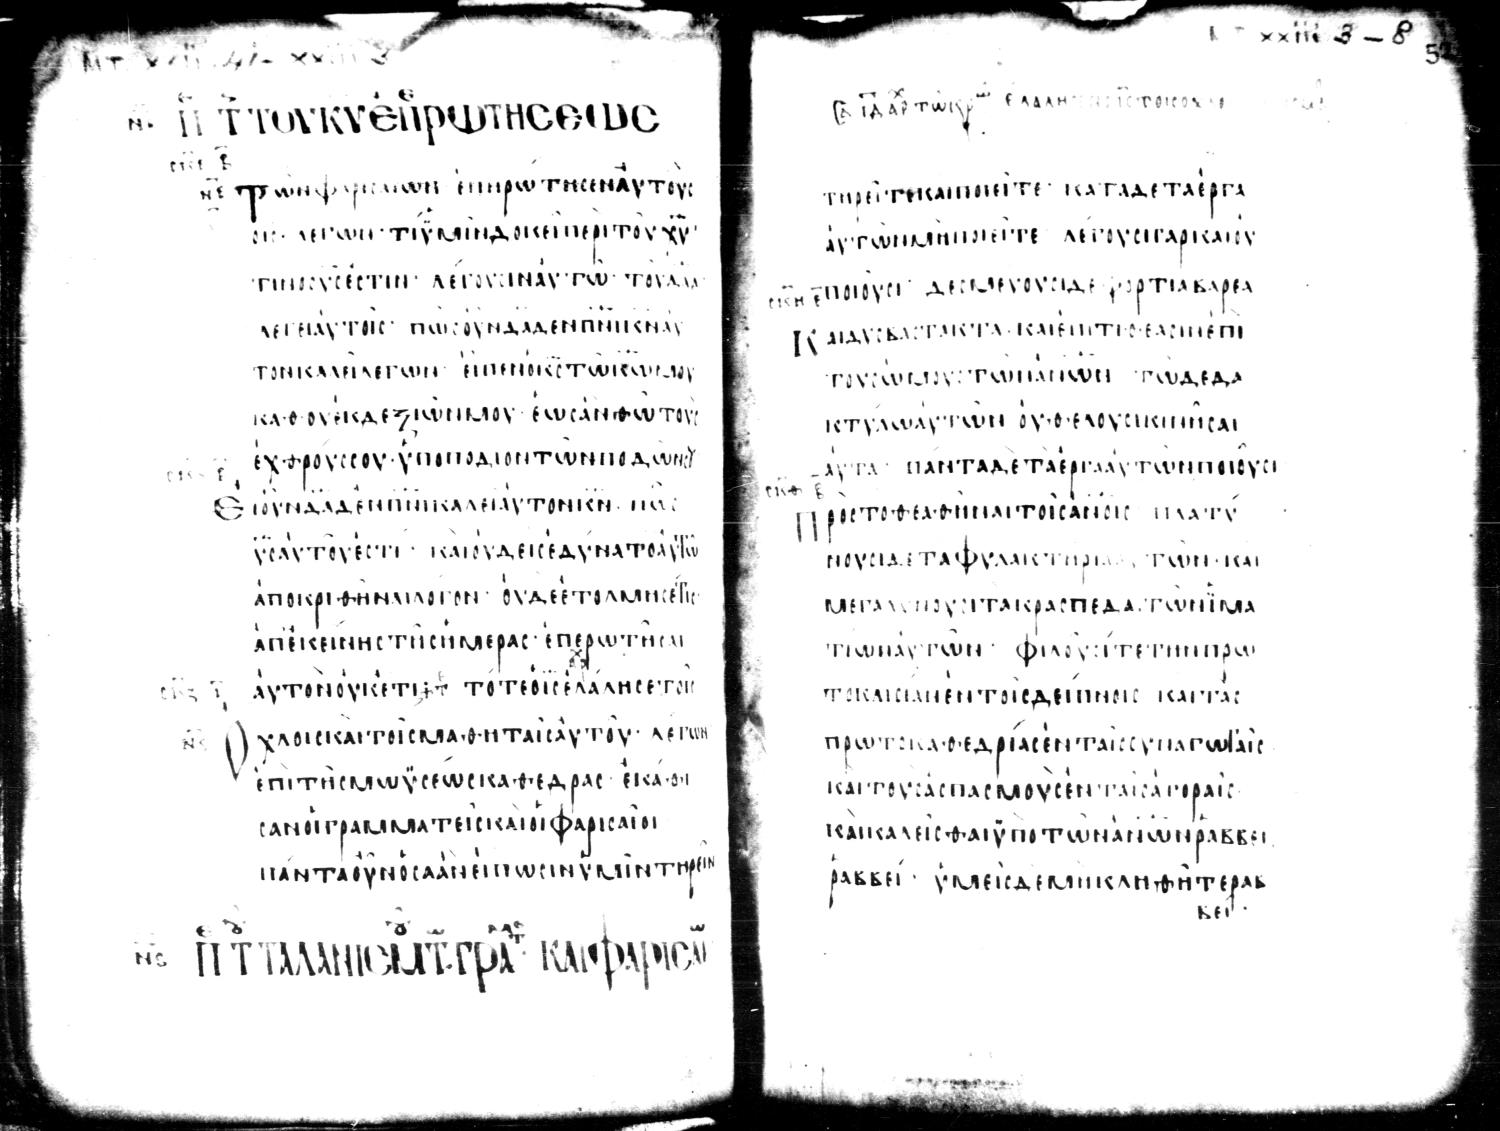 ΜΤ xxii 41 – xxiii 3
π τ του κυ επρωτησεως
των φαρισαιων επηρωτησεν αυτους
οις· λεγων· τι υμιν δοκει περι του χυ·
τινος υς εστιν· λεγουσιν αυτω· του δαδ
λεγει αυτοις· πως ουν δαδ εν πνι κν αυ
τον καλει λεγων· ειπεν ο κς τω κω μου
καθου εκ δεξιων μου· εως αν θω τους
εχθρους σου· υποποδιον των ποδων σου
ει ουν δαδ εν πνι καλει αυτον κν· πως
υς αυτου εστι· και ουδεις εδυνατο αυτω
αποκριθηναι λογον· ουδε ετολμησε τις
απ εκεινης της ημερας· επερωτησαι
αυτον ουκετι τοτε ο ις ελαλησε τοις
οχλοις και τοις μαθηταις αυτου· λεγων
επι της μωυσεως καθεδρας· εκαθι
σαν οι γραμματεις και οι φαρισαιοι
παντα ουν οσα αν ειπωσιν υμιν τηρειν
π τ ταλανισμ τ γρα τ και φαρισαι
ΜΤ xxiii 3 – 8
ελαλησεν ο ις τοις οχλο
τηρειτε και ποιειτε· κατα δε τα εργα
αυτων μη ποιειτε λεγουσι γαρ και ου
ποιουσι· δεσμευουσι δε φορτια βαρεα
και δυσβαστακτα· και επιτιθεασιν επι
τους ωμους των ανων τω δε δα
κτυλω αυτων ου θελουσι κινησαι
αυτα· παντα δε τα εργα αυτων ποιουσι
προς το θεαθηναι τοις ανοις πλατυ
νουσι δε τα φυλακτηρια των· και
μεγαλυνουσι τα κρασπεδα των ιμα
τιων αυτων· φιλουσι τε την πρω
τοκλισιαν εν τοις δειπνοις και τας
πρωτοκαθεδριας εν ταις συναγωγαις
και τους ασπασμους εν ταις αγοραις·
και καλεισθαι υπο των ανων ραββει
ραββει· υμεις δε μη κληθητε ραβ
βει·